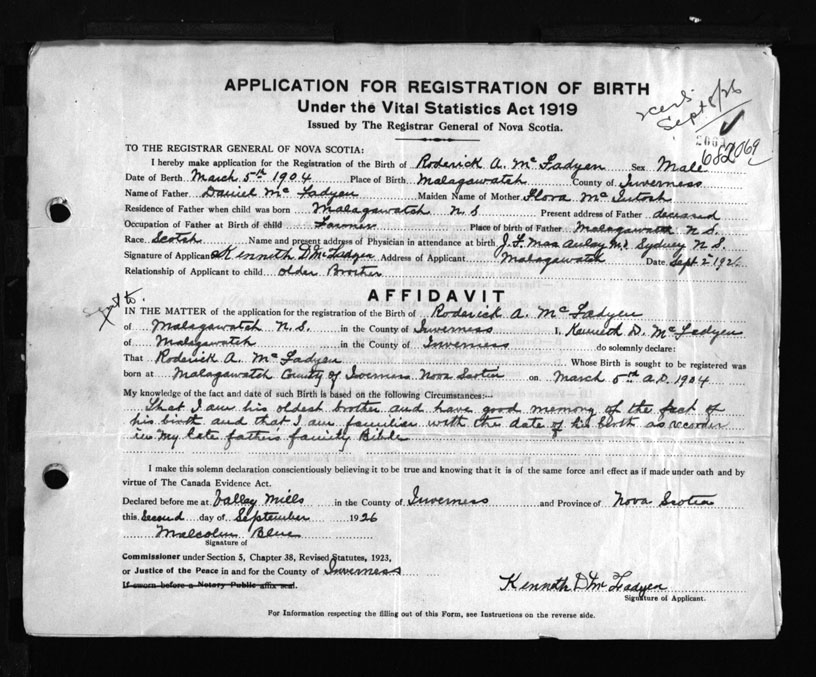 APPLICATION FOR REGISTRATION OF BIRTH
Under the Vital Statistics Act 1919
Issued by The Registrar General of Nova Scotia.
Sept 8/26
682069
TO THE REGISTRAR GENERAL OF NOVA SCOTIA:
I hereby make application for the Registration of the Birth of Roderick A. McFadyen Sex Male
Date of Birth March 5th 1904 Place of Birth Malagawatch County of Inverness
Name of Father Daniel McFadyen Maiden Name of Mother Flora McIntosh
Residence of Father when child was born Malagawatch N S Present address of Father deceased
Occupation of Father at Birth of child Farmer Place of birth of Father Malagawatch N S.
Race Scotch Name and present address of Physician in attendance at birth J. F. MacAulay M.D. Sydney N S.
Signature of Applicant Kenneth D McFadyen Address of Applicant Malagawatch Date Sept 2 1926
Relationship of Applicant to child older Brother
AFFIDAVIT
IN THE MATTER of the application for the registration of the Birth of Roderick A. McFadyen
of Malagawatch N.S. in the County of Inverness I, Kenneth D. McFadyen
of Malagawatch in the County of Inverness do solemnly declare:
That Roderick A. McFadyen Whose Birth is sought to be registered was
born at Malagawatch County of Inverness Nova Scotia on March 5th A.D. 1904
My knowledge of the fact and date of such Birth is based on the following Circumstances:--
That I am his oldest brother and have good memory of the fact of
his birth and that I am familiar with the date of his birth as recorded
in my late father's family Bible
I make this solemn declaration conscientiously believing it to be true and knowing that it is of the same force and effect as if made under oath and by
virtue of The Canada Evidence Act.
Declared before me at Valley Mills in the County of Inverness and Province of Nova Scotia
this Second day of September 1926
Malcolm Blue
Signature of
Commissioner under Section 5, Chapter 38, Revised Statutes, 1923,
or Justice of the Peace in and for the County of Inverness
If sworn before a Notary Public affix seal.
Kenneth D McFadyen
Signature of Applicant.
For Information respecting the filling out of this Form, see Instructions on the reverse side.